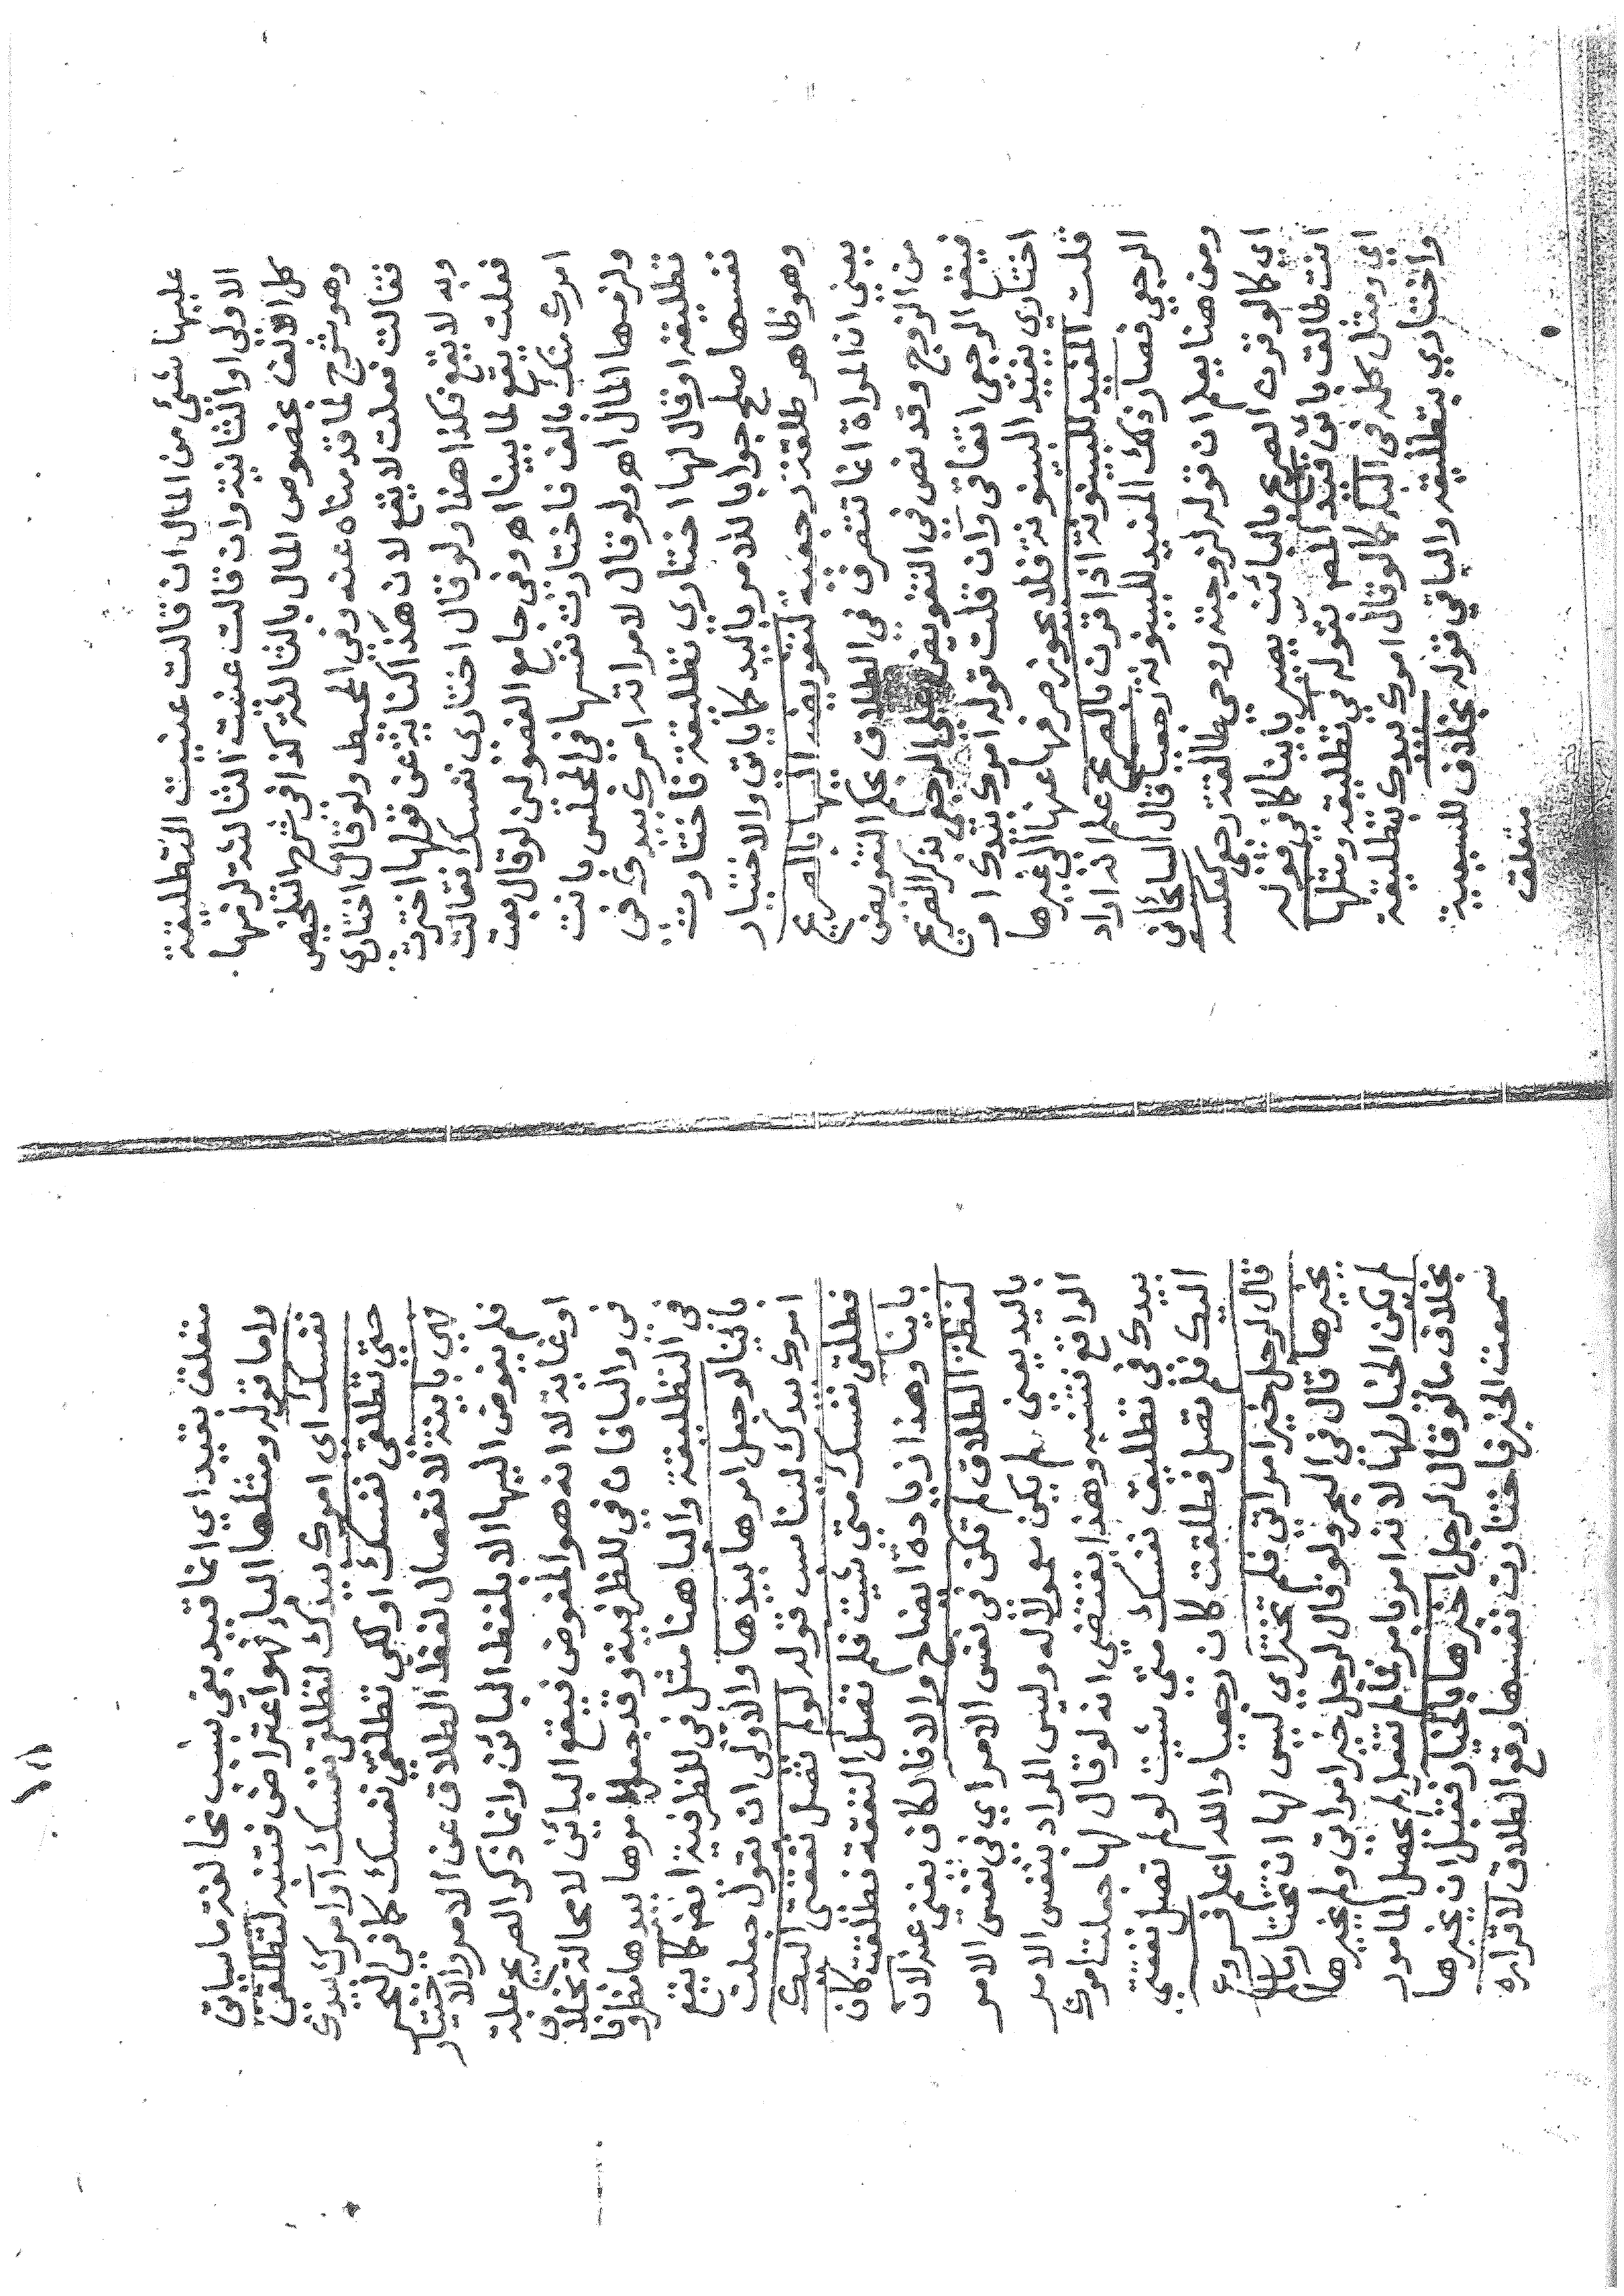 عليها شئ من المال ان قالت عنيت التطليقة
الاولى او الثانية وان قالت عنيت الثالثة لزمها
كل الالف عضوص المال بالثالثة كذا في شرح التلخيص
وهو شرح لما قدمناه عنه وفي المحيط ولو قال اختاري
فقالت فعلت لا يقع لان هذا كناية عن قولها اخترت
وبه لا يقع فكذا هنا ولو قال اختاري نفسك فقالت
فعلت يقع لما بينا اهـ وفي جامع الفصولين لو قال بعت
امرك منك بالف فاختارت نفسها في المجلس بانت
ولزمها المال اهـ ولو قال لامراته امرك بيدك في
تطليقة او قال لها اختاري تطليقة فاختارت
نفسها صلح جوابا للامر باليد كما ياتي والاختيار
وهو ظاهر طلقة رجعية لتفويضه اليها بالصريح
يعني ان المراة انما تتصرف في الطلاق بحكم التفويض
من الزوج وقد نص في التفويض على الرجعي بذكر الصريح
فيقع الرجعي اتفاقا وان قلت قوله امرك بيدك او
اختاري يفيد البينونة فلا يجوز صرفها عنها الى غيرها
قلت المفيد للبينونة اذا قرن بالصريح علم انه اراد
الرجعي فصار ذلك المفيد للبينونة رجعيا قال السايحاني
ومن هنا يعلم ان قوله لزوجته روحي طالقة رجعي كعكسه
اي كما لو قرن الصريح بالبائن يصير باينا كما في قوله
انت طالق بائن قيد المص بقوله في تطليقة ومثلها
اي ومثل كلمة في الباء كما لو قال امرك بيدك بتطليقة
واختاري بتطليقة والباقي قوله بخلاف للسببية
متعلق
١٨١
متعلق بقيد اي انما قيد بفي بسبب مخالفة ما سياتي
ولاما قوله ومثلها الباء فهو اعتراض فتنبه لتطلقي
نفسك اي امرك بيدك لتطلقي نفسك او امرك بيدي
حتى تطلقي نفسك او لكي تطلقي نفسك كما في البحر
فهي باينة لانفصال لفظ الطلاق عن الامر والاختيار
فلم يفوض اليها الا بلفظ البائن وانما ذكر الصريح علة
او غاية لا انه هو المفوض فيقع البائن لا محالة بخلاف
في والباء فان في للظرفية وقد جعل امرها بيدها مظروفا
في التطليقة والباء هنا مثل في للظرفية ايضا كما يقع
بائنا لو جعل امرها بيدها والاولى ان يقول جعلت
امرك بيدك ليناسب قوله لو لم تصل نفقتي اليك
فطلقي نفسك متى شيت فلم تصل النفقة فطلقت كان
باينا وهذا زيادة ايضاح والا فالكاف يغني عنه لان
لفظة الطلاق لم تكن في نفس الامر اي في نفس الامر
باليد يعني لم يكن معمولا له وليس المراد بنفس الامر
الواقع فتنبه وهذا يقتضي انه لو قال لها جعلت امرك
بيدك في تطليق نفسك متى شيت لو لم تصل نفقتي
اليك فلم تصل فطلقت كان رجعيا والله اعلم فروع
قال لرجل خير امراتي فلم تختر اي ليس لها ان تختار مالم
يخيرها قال في البحر ولو قال لرجل خير امراتي ولم يخيرها
لم يكن الخيار لها لانه امر بامر فما لم يفعل لم يحصل المامور
بخلاف ما لو قال لرجل اخبرها بالخيار فقبل ان يخبرها
سمعت الخبر فاختارت نفسها وقع الطلاق لاقراره